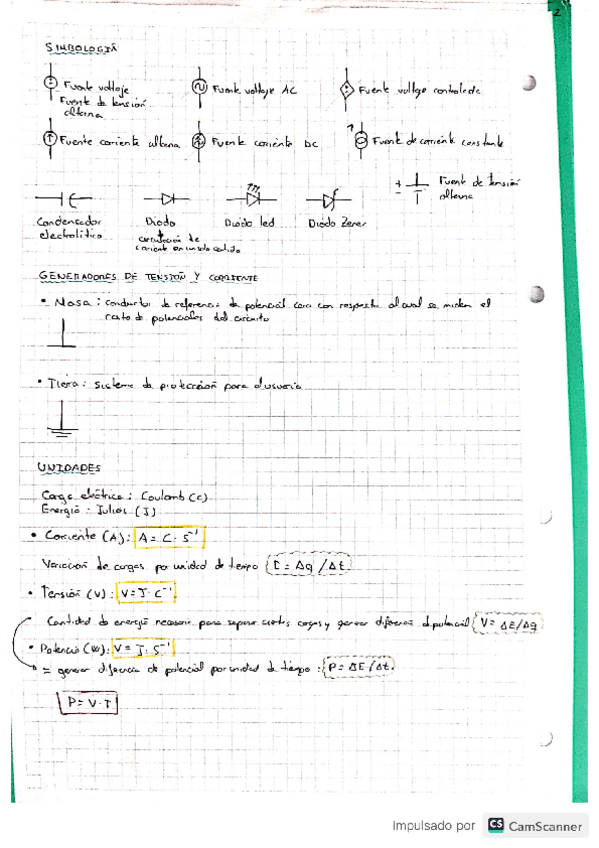 2
SIMBOLOGÍA
Fuente voltaje
Fuente de tensión
alterna
Fuente voltaje AC
Fuente voltaje controlada
Fuente corriente alterna
Fuente corriente DC
Fuente de corriente constante
+
-
Fuente de tensión
alterna
Condensador
electrolítico
Diodo
circulación de
corriente en un solo sentido
Diodo led
Diodo Zener
GENERADORES DE TENSIÓN Y CORRIENTE
• Masa: conductor de referencia de potencial cero con respecto al cual se miden el
resto de potenciales del circuito
• Tierra: sistema de protección para el usuario
UNIDADES
Carga eléctrica: Coulomb (C)
Energía: Julios (J)
• Corriente (A): A = C · s⁻¹
Variación de cargas por unidad de tiempo I = Δq / Δt
• Tensión (V): V = J · C⁻¹
Cantidad de energía necesaria para separar cargas y generar diferencia de potencial V = ΔE/Δq
• Potencia (W): V = J · S⁻¹
= generar diferencia de potencial por unidad de tiempo: P = ΔE / Δt
P = V · I
Impulsado por CS CamScanner